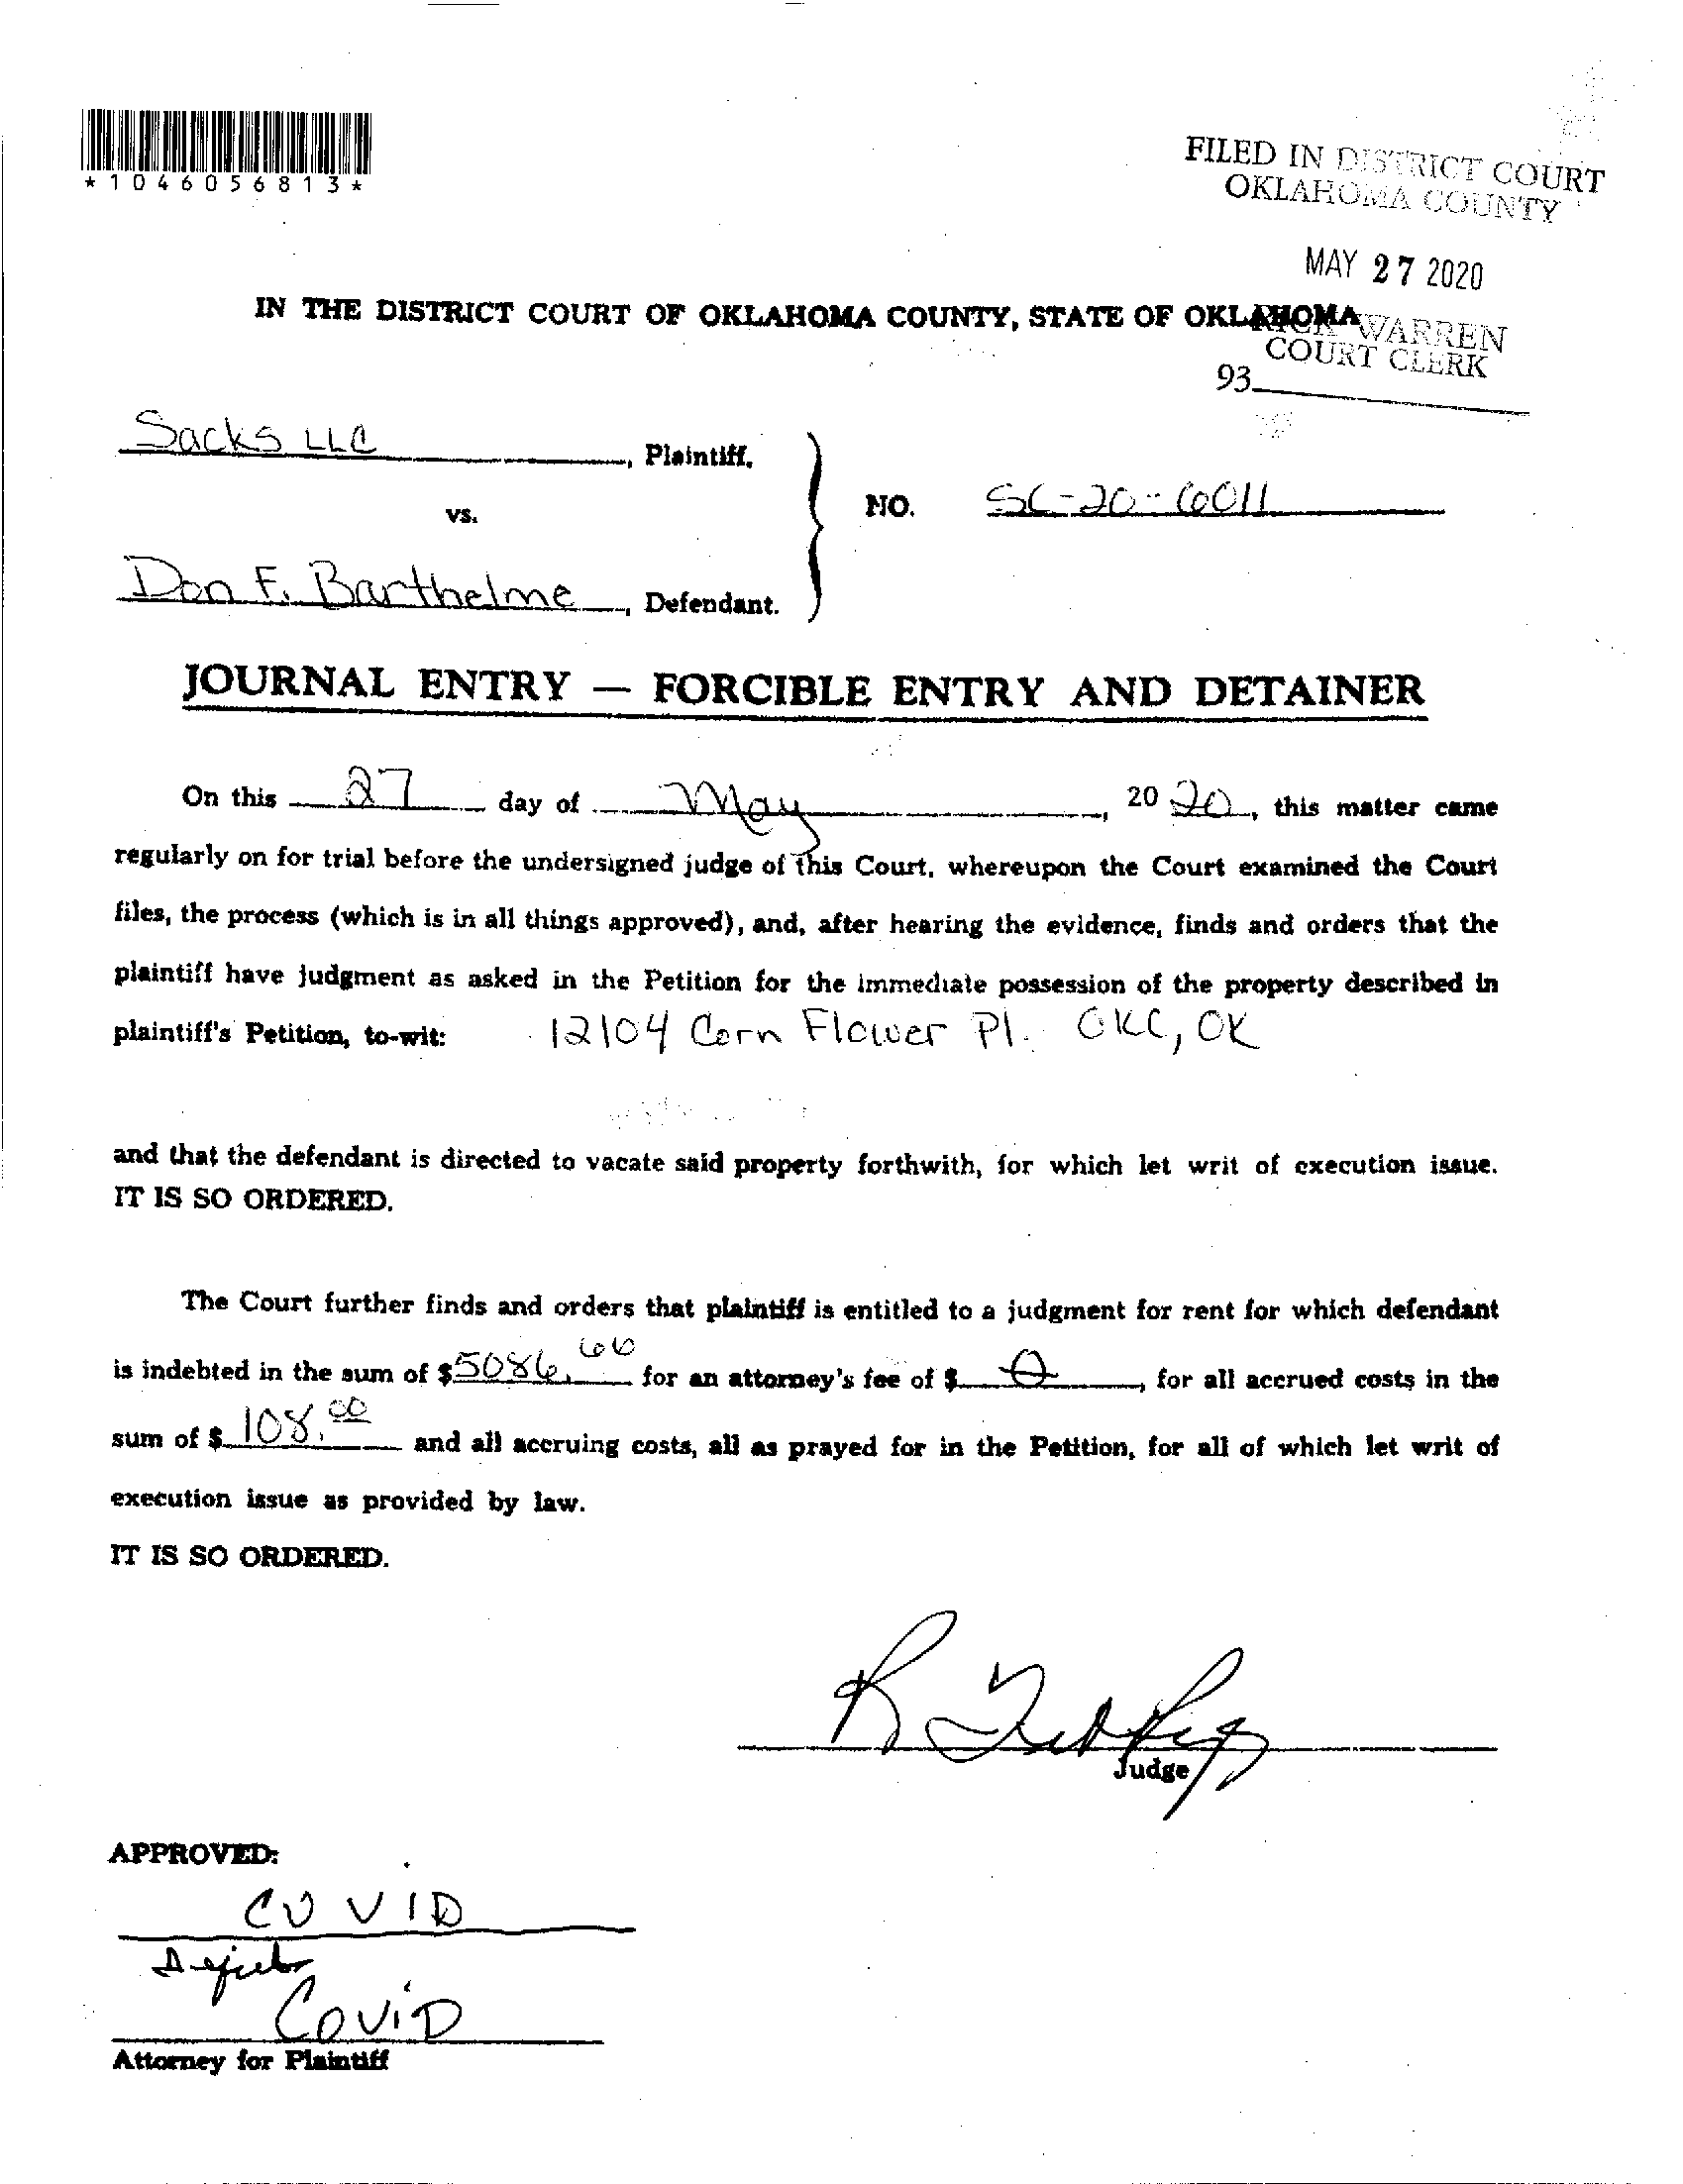 *1046056813*
FILED IN DISTRICT COURT
OKLAHOMA COUNTY
MAY 27 2020
IN THE DISTRICT COURT OF OKLAHOMA COUNTY, STATE OF OKLAHOMA
WARREN
COURT CLERK
93
Sacks LLC, Plaintiff,
vs.
NO. SC-20-6011
Don F. Barthelme, Defendant.
JOURNAL ENTRY — FORCIBLE ENTRY AND DETAINER
On this 27 day of May, 2020, this matter came
regularly on for trial before the undersigned judge of this Court, whereupon the Court examined the Court
files, the process (which is in all things approved), and, after hearing the evidence, finds and orders that the
plaintiff have judgment as asked in the Petition for the immediate possession of the property described in
plaintiff's Petition, to-wit: 12104 Corn Flower Pl. OKC, OK
and that the defendant is directed to vacate said property forthwith, for which let writ of execution issue.
IT IS SO ORDERED.
The Court further finds and orders that plaintiff is entitled to a judgment for rent for which defendant
is indebted in the sum of $5086.66 for an attorney's fee of $ 0, for all accrued costs in the
sum of $ 108.00 and all accruing costs, all as prayed for in the Petition, for all of which let writ of
execution issue as provided by law.
IT IS SO ORDERED.
Judge
APPROVED:
COVID
COVID
Attorney for Plaintiff